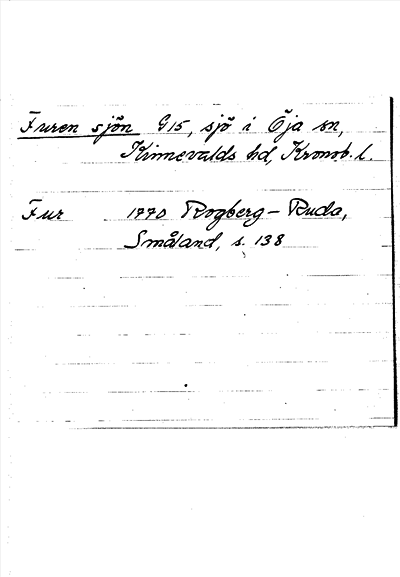 Furen sjön G15, sjö i Öja sn,
Kinnevalds hd, Kronob. l.
Fur 1770 Rogberg - Ruda,
Småland, s. 138